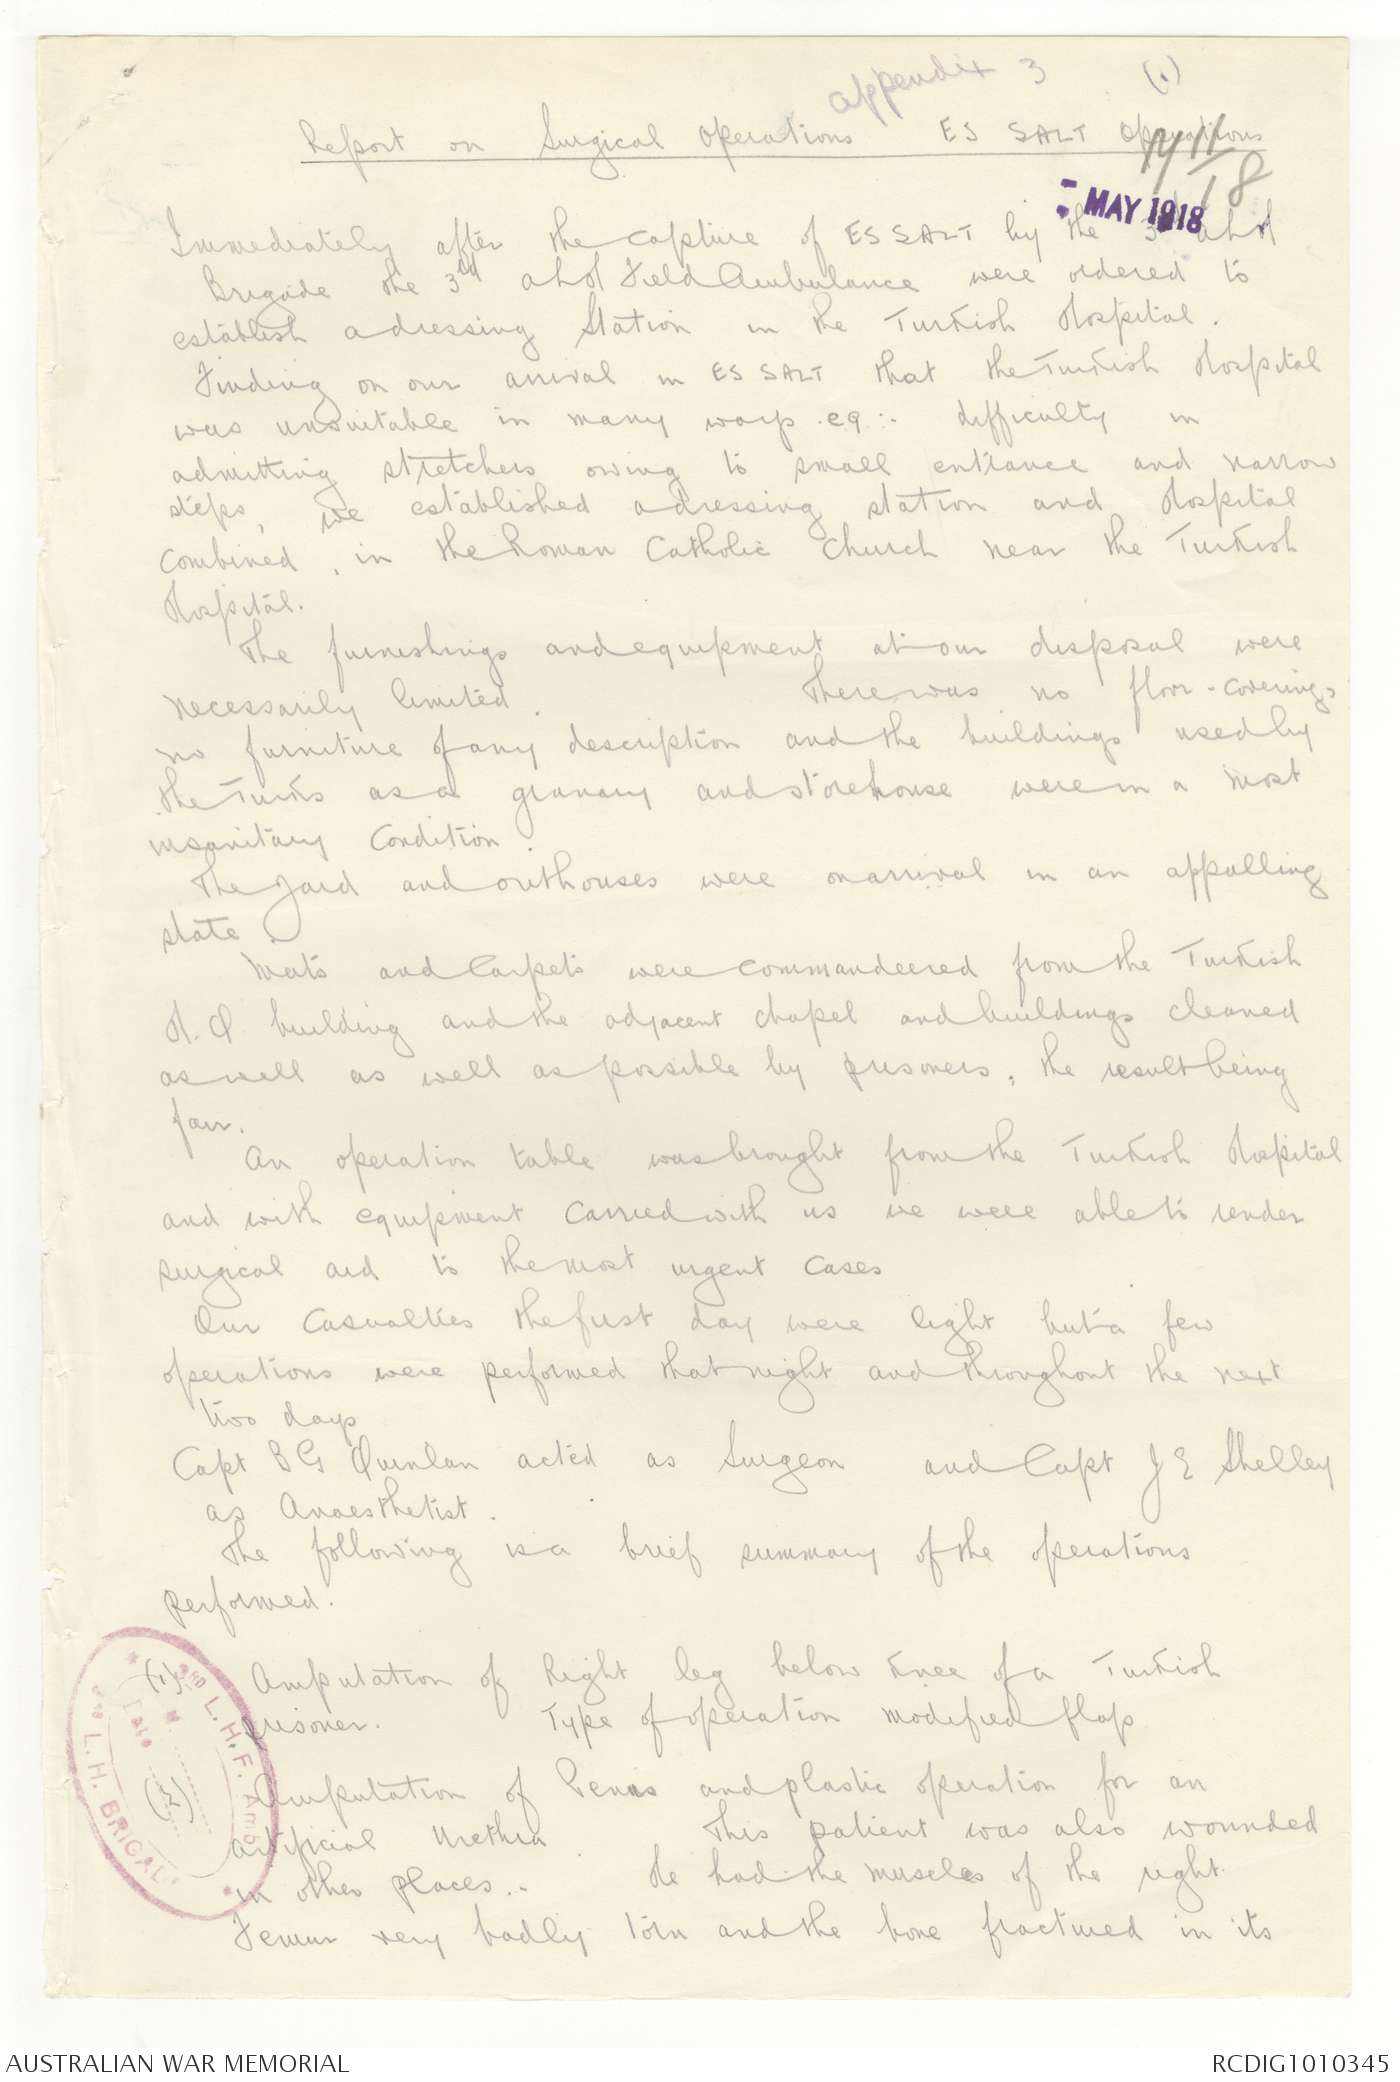 appendix 3 (1)
Report on Surgical Operations ES SALT Operations
14/11/18
5 MAY 1918
Immediately after the capture of ES SALT by the 3rd ALH
Brigade the 3rd ALH Field Ambulance were ordered to
establish a dressing Station in the Turkish Hospital.
Finding on our arrival in ES SALT that the Turkish Hospital
was unsuitable in many ways .eg:- difficulty in
admitting stretchers owing to small entrance and narrow
steps, we established a dressing station and Hospital
combined, in the Roman Catholic Church near the Turkish
Hospital.
The furnishings and equipment at our disposal were
necessarily limited. There was no floor-coverings
no furniture of any description and the buildings used by
the Turks as a granary and storehouse were in a most
insanitary condition.
The yard and outhouses were on arrival in an appalling
state.
Mats and Carpets were commandeered from the Turkish
H.Q building and the adjacent chapel and buildings cleaned
as well as well as possible by prisoners, the result being
fair.
An operation table was brought from the Turkish Hospital
and with equipment carried with us we were able to render
surgical aid to the most urgent cases
Our Casualties the first day were light but a few
operations were performed that night and throughout the next
two days
Capt B G Quinlan acted as Surgeon and Capt J E Shelley
as Anaesthetist.
The following is a brief summary of the operations
performed.
(1) Amputation of Right leg below knee of a Turkish
prisoner. Type of operation modified flap
(2) Amputation of Penis and plastic operation for an
artificial Urethra. This patient was also wounded
in other places.- He had the muscles of the right
Femur very badly torn and the bone fractured in its
L.H.F. Amb
L.H. BRIGAD
AUSTRALIAN WAR MEMORIAL
RCDIG1010345